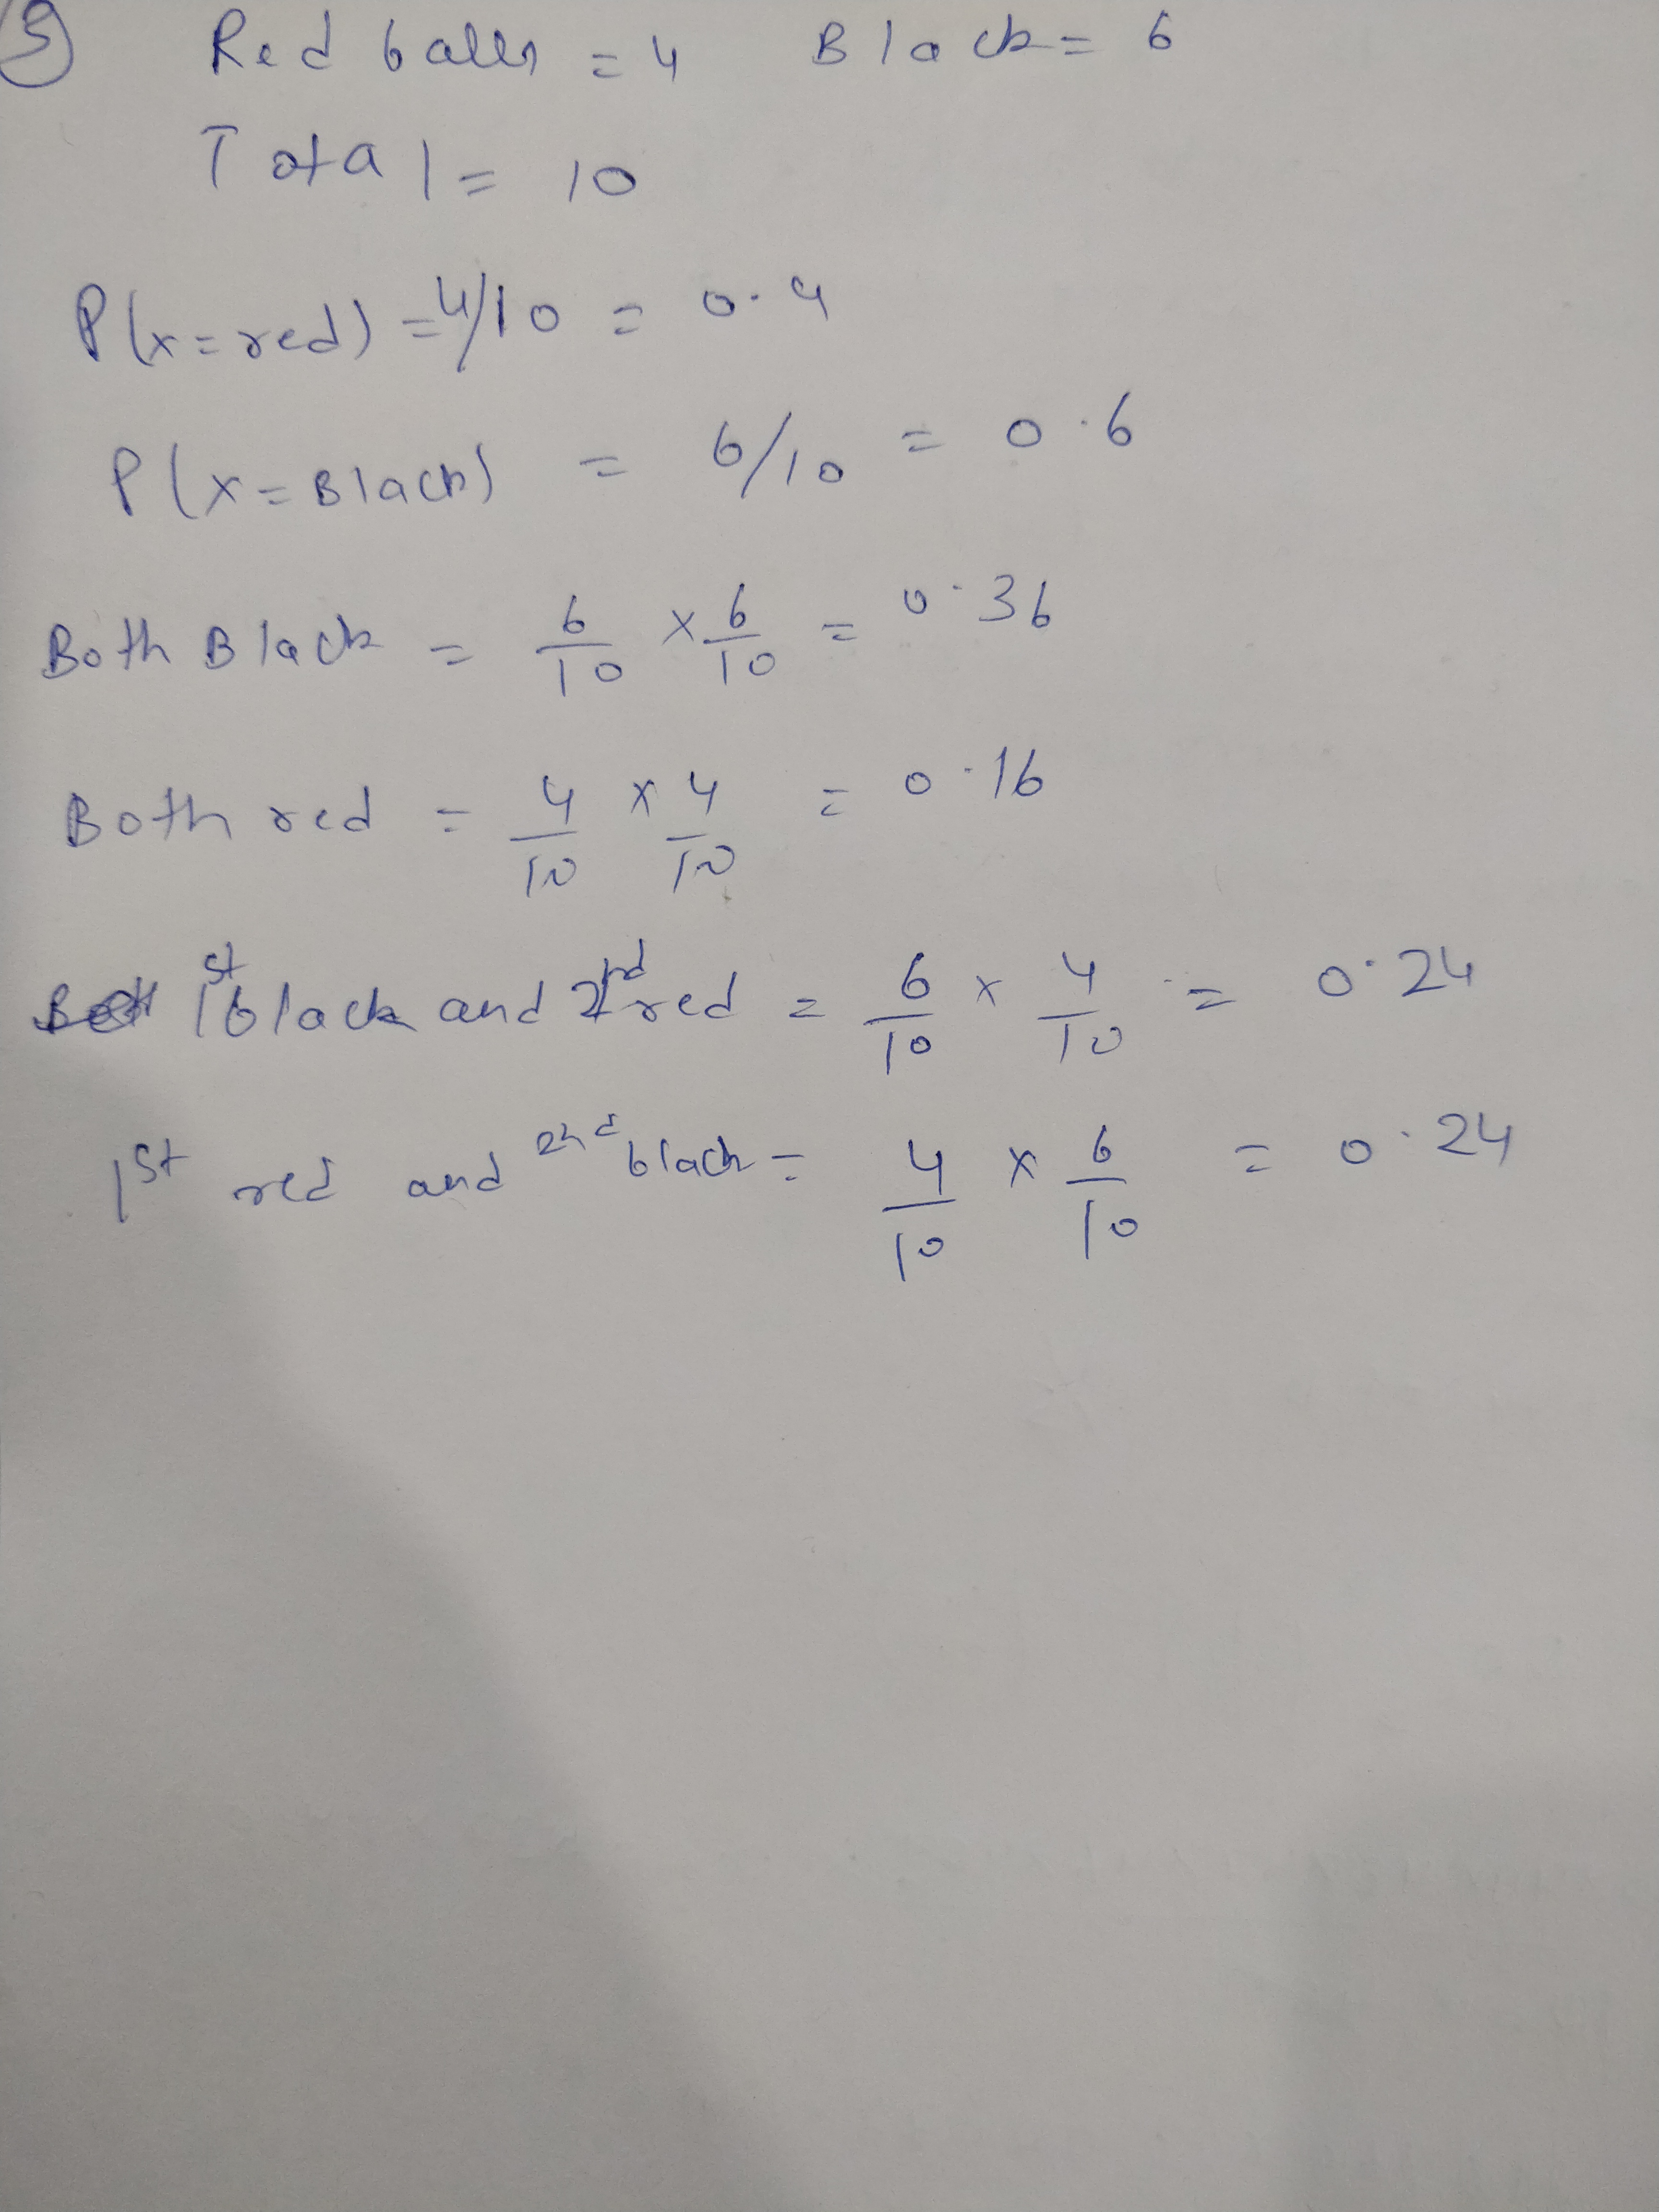 5) Red balls = 4 Black = 6
Total = 10
P(x=red) = 4/10 = 0.4
P(x=Black) = 6/10 = 0.6
Both Black = 6/10 × 6/10 = 0.36
Both red = 4/10 × 4/10 = 0.16
1st black and 2nd red = 6/10 × 4/10 = 0.24
1st red and 2nd black = 4/10 × 6/10 = 0.24